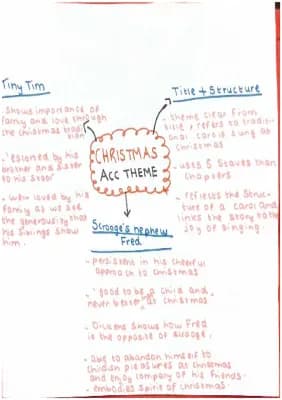 Tiny Tim
- shows importance of
family and love through
the christmas tradi-
tion
- 'escorted by his
brother and sister
to his stool'
- well loved by his
family as we see
the generosity that
his siblings show
him.
CHRISTMAS
ACC THEME
Title + Structure
- theme clear from
title, refers to traditi-
onal carols sung at
christmas
- uses 5 staves than
chapters
- reflects the struc-
ture of a carol and
links the story to the
joy of singing.
Scrooge's nephew
Fred
- persistent in his cheerful
approach to christmas
- 'good to be a child and
never better than at christmas'
- Dickens shows how Fred
is the opposite of scrooge,
- able to abandon himself to
childish pleasures at christmas
and enjoy company of his friends.
- embodies spirit of christmas.